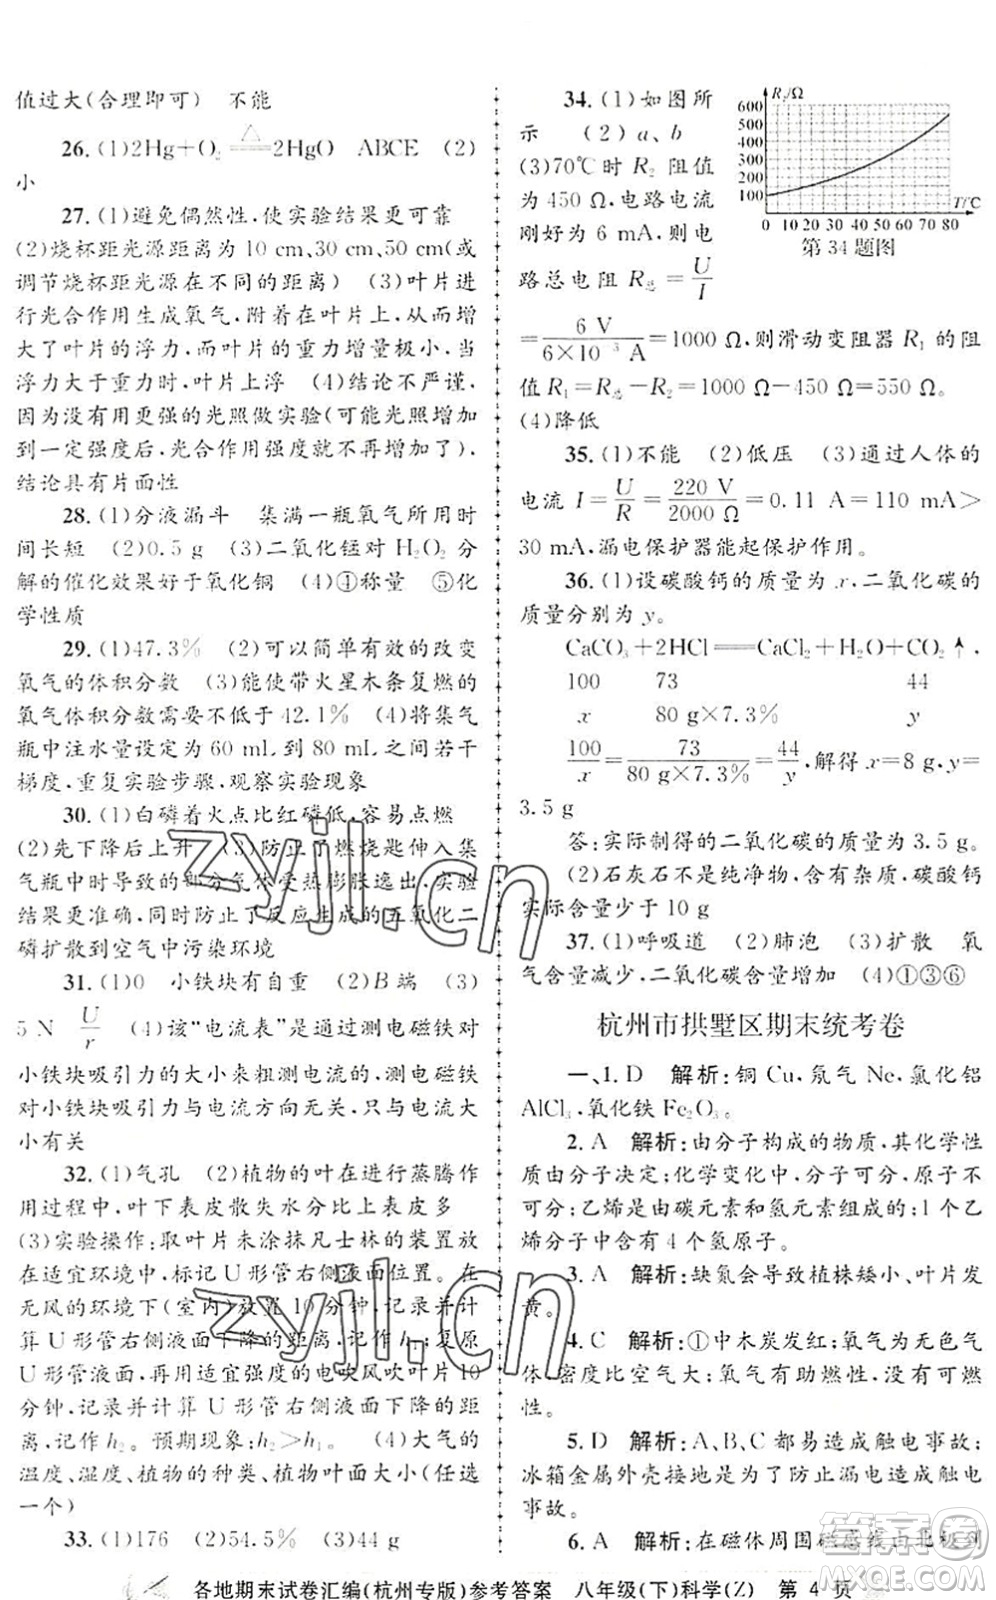 值过大(合理即可)　不能
26.(1)2Hg+O₂ △ 2HgO　ABCE　(2)
小
27.(1)避免偶然性,使实验结果更可靠
(2)烧杯距光源距离为 10 cm,30 cm,50 cm(或
调节烧杯距光源在不同的距离)　(3)叶片进
行光合作用生成氧气,附着在叶片上,从而增
大了叶片的浮力,而叶片的重力增量极小,当
浮力大于重力时,叶片上浮　(4)结论不严谨,
因为没有用更强的光照做实验(可能光照增加
到一定强度后,光合作用强度就不再增加),
结论具有片面性
28.(1)分液漏斗　集满一瓶氧气所用时
间长短　(2)0.5 g　(3)二氧化锰对 H₂O₂ 分
解的催化效果好于氧化铜　(4)④称量　⑤化
学性质
29.(1)47.3%　(2)可以简单有效的改变
氧气的体积分数　(3)能使带火星木条复燃的
氧气体积分数需要不低于 42.1%　(4)将集气
瓶中注水量设定为 60 mL 到 80 mL 之间若干
梯度,重复实验步骤,观察实验现象
30.(1)白磷着火点比红磷低,容易点燃
(2)先下降后上升　(3)防止了燃烧匙伸入集
气瓶中时导致的部分气体受热膨胀逸出,实验
结果更准确,同时防止了反应生成的五氧化二
磷扩散到空气中污染环境
31.(1)0　小铁块有自重　(2)B 端　(3)
5 N　U/r　(4)该“电流表”是通过测电磁铁对
小铁块吸引力的大小来粗测电流的,而电磁铁
对小铁块吸引力与电流方向无关,只与电流大
小有关
32.(1)气孔　(2)植物的叶在进行蒸腾作
用过程中,叶下表皮散失水分比上表皮多
(3)实验操作:取叶片未涂抹凡士林的装置放
在适宜环境下,标记 U 形管右侧液面位置。在
无风的环境下(室内)放置 10 分钟,记录并计
算 U 形管右侧液面下降的距离,记作 h₁;复原
U 形管液面,用适宜强度的电吹风吹叶片 10
分钟,记录并计算 U 形管右侧液面下降的距
离,记作 h₂。预期现象:h₂>h₁。　(4)大气的
温度、湿度、植物的种类、植物叶面大小(任选
一个)
33.(1)176　(2)54.5%　(3)44 g
34.(1)如图所
示　(2)a、b
(3)70℃时 R₂ 阻值
为 450 Ω,电路电流
刚好为 6 mA,则电
路总电阻 R总=U/I
R₂/Ω
600
500
400
300
200
100
0 10 20 30 40 50 60 70 80
T/℃
第 34 题图
=6 V/(6×10⁻³ A)=1000 Ω,则滑动变阻器 R₁ 的阻
值 R₁=R总-R₂=1000 Ω-450 Ω=550 Ω。
(4)降低
35.(1)不能　(2)低压　(3)通过人体的
电流 I=U/R=220 V/2000 Ω=0.11 A=110 mA>
30 mA,漏电保护器能起保护作用。
36.(1)设碳酸钙的质量为 x,二氧化碳的
质量分别为 y。
CaCO₃+2HCl══CaCl₂+H₂O+CO₂↑,
100　73　44
x　80 g×7.3%　y
100/x=73/(80 g×7.3%)=44/y,解得 x=8 g,y=
3.5 g
答:实际制得的二氧化碳的质量为 3.5 g。
(2)石灰石不是纯净物,含有杂质,碳酸钙
实际含量少于 10 g
37.(1)呼吸道　(2)肺泡　(3)扩散　氧
气含量减少,二氧化碳含量增加　(4)①③⑥
杭州市拱墅区期末统考卷
一、1.D　解析:铜 Cu,氖气 Ne,氯化铝
AlCl₃,氧化铁 Fe₂O₃。
2.A　解析:由分子构成的物质,其化学性
质由分子决定;化学变化中,分子可分,原子不
可分;乙烯由碳元素和氢元素组成的;1 个乙
烯分子中含有 4 个氢原子。
3.A　解析:缺氮会导致植株矮小、叶片发
黄。
4.C　解析:①中木炭发红;氧气为无色气
体,密度比空气大;氧气具有助燃性,不具有可燃
性。
5.D　解析:A、B、C 都易造成触电事故;
冰箱金属外壳接地是为了防止漏电造成触电
事故。
6.A　解析:在磁体周围磁感线由北极到
各地期末试卷汇编(杭州专版)参考答案　八年级(下)科学(Z)　第 4 页
zyjl.cn
zyjl.cn
答案圈
MXQE.COM